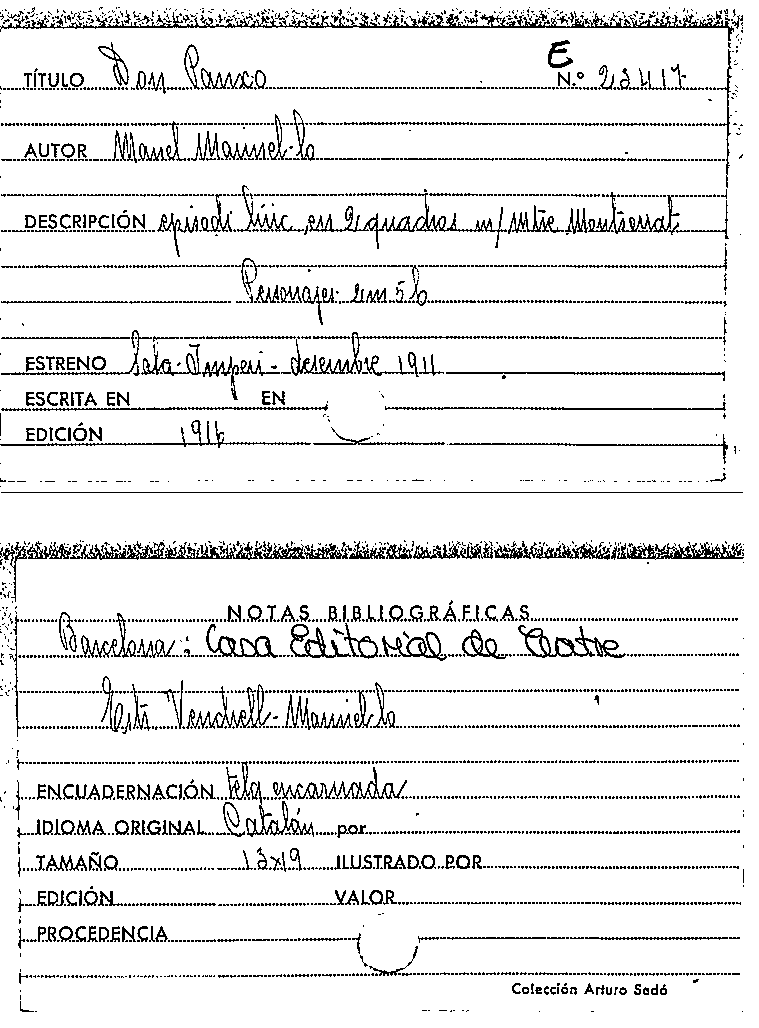 TÍTULO Don Panxo E N.º 23417
AUTOR Manel Marinel-lo
DESCRIPCIÓN episodi líric en 2 quadros m/ Mtre Montserrat
Personajes 2m 5h
ESTRENO Sala-Imperi - desembre 1911
ESCRITA EN EN
EDICIÓN 1916
NOTAS BIBLIOGRÁFICAS
Barcelona: Casa Editorial de Teatre
Vendrell-Marinel-lo
ENCUADERNACIÓN tela encarnada
IDIOMA ORIGINAL Catalán por
TAMAÑO 13x19 ILUSTRADO POR
EDICIÓN VALOR
PROCEDENCIA
Colección Arturo Sedó